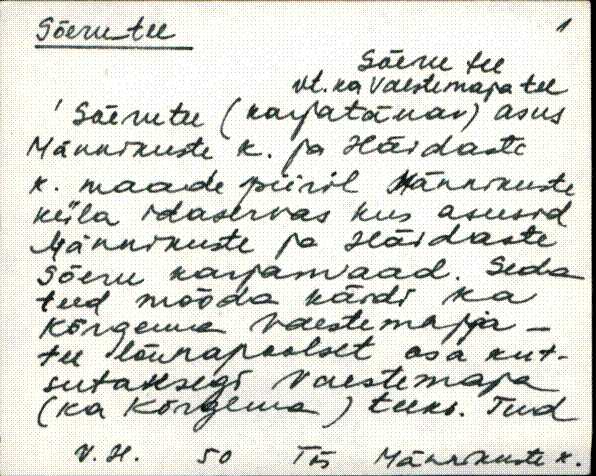 Sõeru tee 1
Sõeru tee
vt. ka Vaestemaja tee
Sõerutee (karjatänav) asus
Männikuste k. ja Häidaste
k. maade piiril Männikuste
küla idaservas kus asusid
Männikuste ja Häidaste
Sõeru karjamaad. Seda
teed mööda käidi ka
Kõrgema Vaestemajja -
tee lõunapoolset osa kut-
sutaksegi Vaestemaja
(ka Kõrgema) teeks. Tuld
V. H. 50 Tõs Männikuste k.